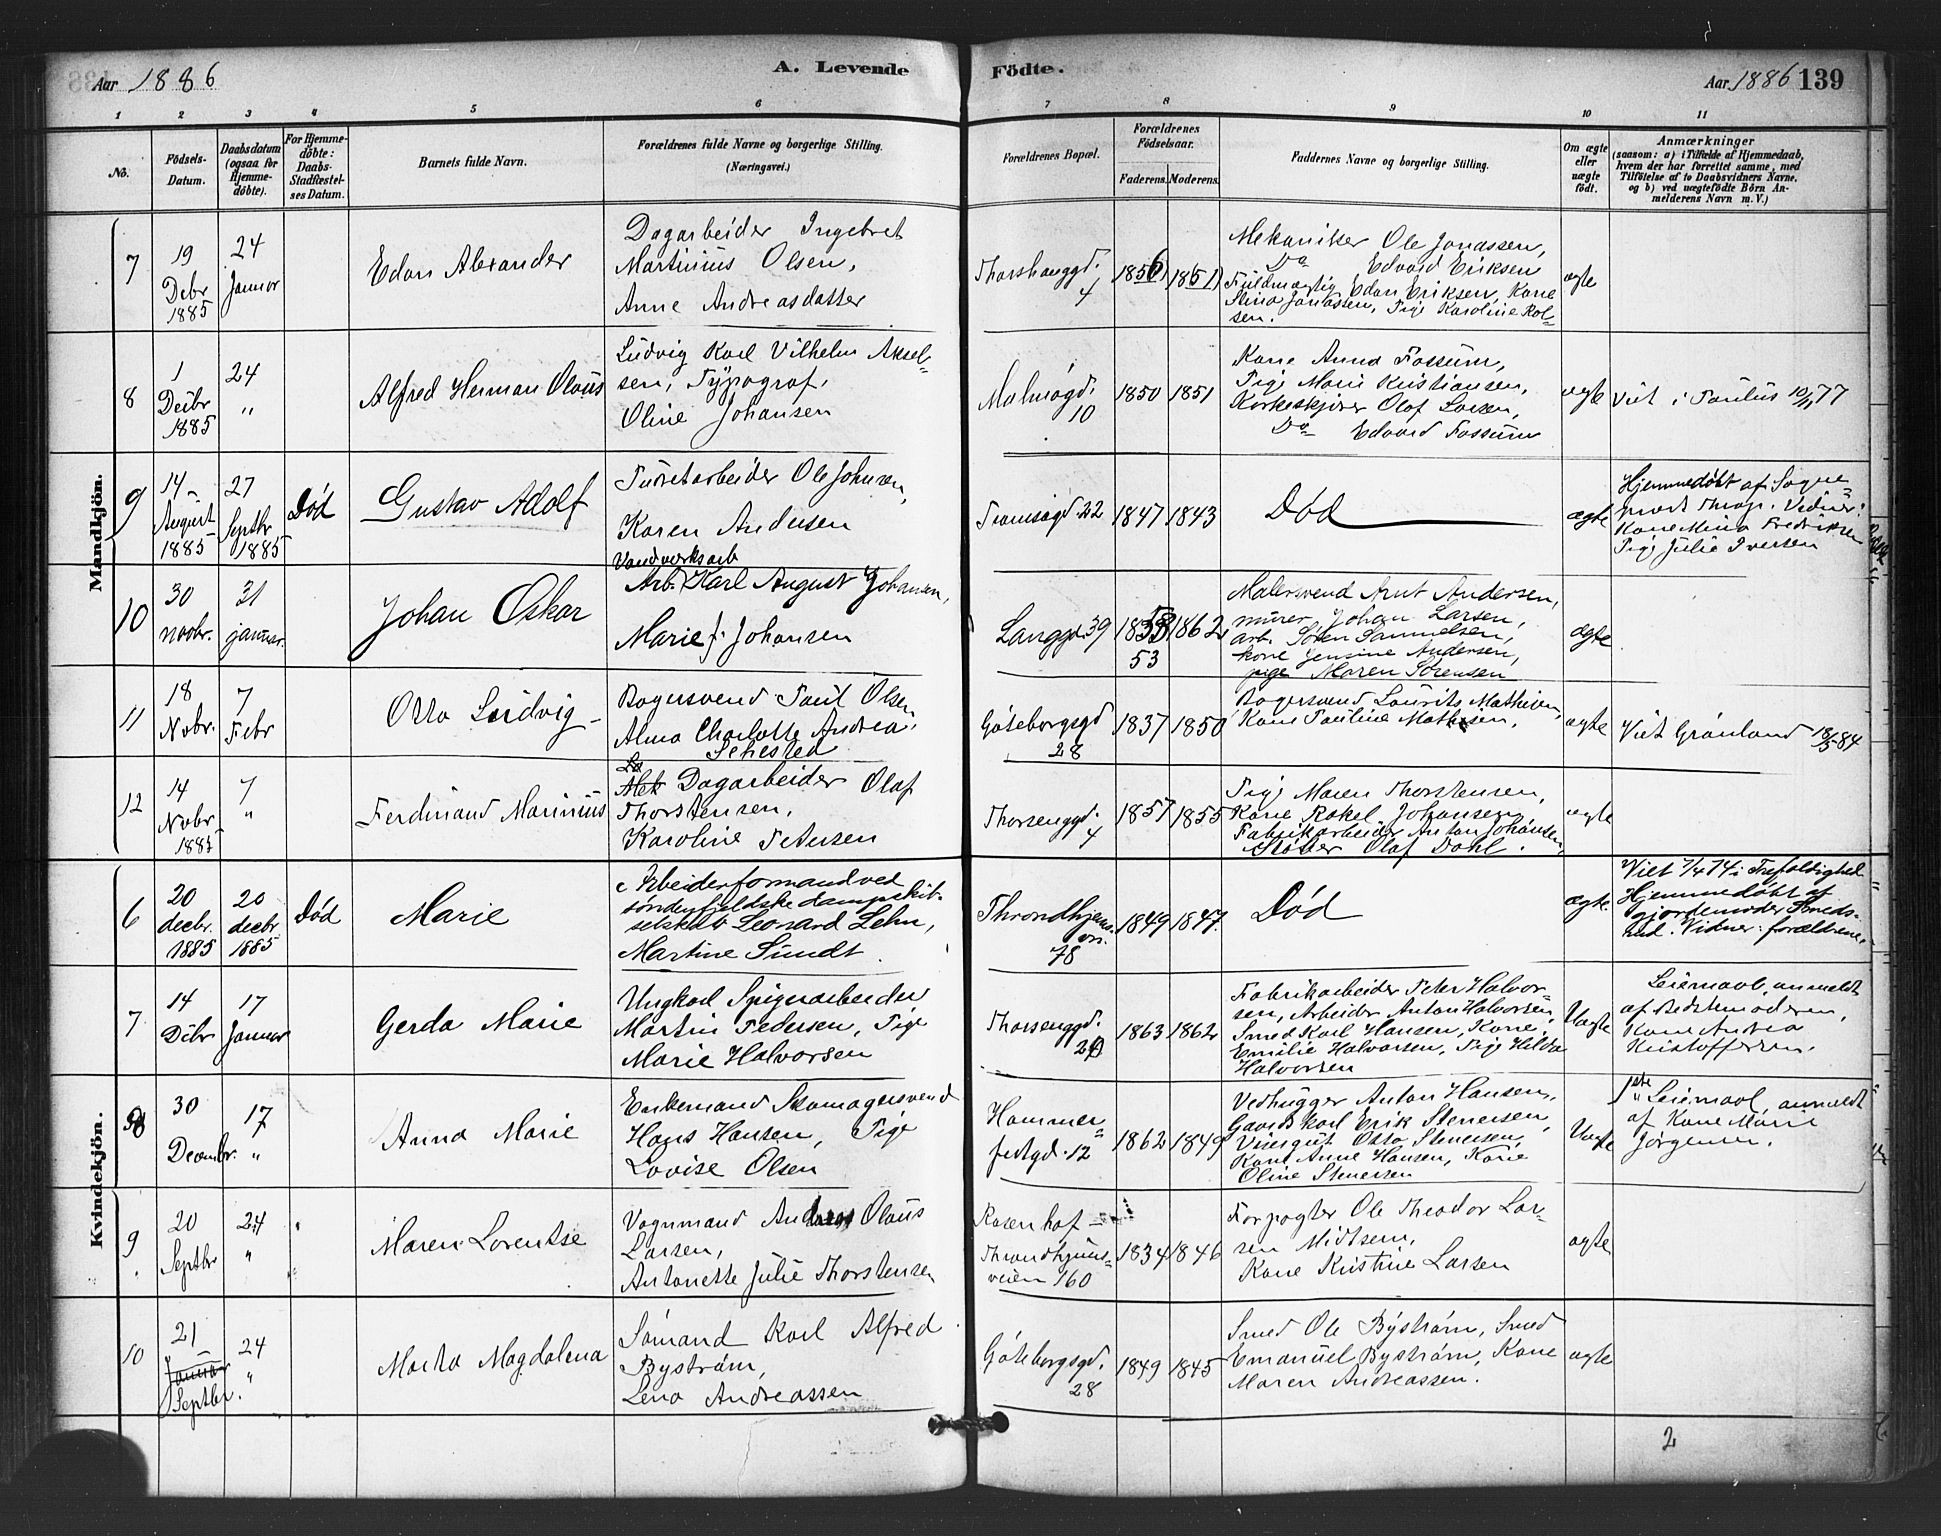 Aar 1886
A. Levende
Födte.
Aar 1886 139
1 2 3 4 5 6 7 8 9 10 11
No.
Födsels-Datum.
Daabsdatum (ogsaa for Hjemmedöbte).
For Hjemmedöbte: Daabs-Stadfæstelses Datum.
Barnets fulde Navn.
Forældrenes fulde Navne og borgerlige Stilling.
(Næringsvei.)
Forældrenes Bopæl.
Forældrenes Födselsaar.
Faderens. Moderens.
Faddernes Navne og borgerlige Stilling.
Om ægte eller uægte födt.
Anmærkninger
(saasom: a) i Tilfælde af Hjemmedaab,
hvem der har forrettet samme, med
Tilföielse af to Daabsvidners Navne,
og b) ved uægtefödte Börn Anmelderens Navn m. V.)
Mandkjön.
7
19 Debr 1885
24 Januar
Edon Alexander
Dagarbeider Ingebret
Martinius Olsen,
Anne Andreasdatter
Thorshauggd. 4
1856
1851
Mekaniker Ole Jonassen,
Do Edvard Eriksen
Fuldmægtig Edon Eriksen, Kone
Stina Jonassen, Pige Karoline Rol-
sen.
ægte
8
1 Debr 1885
24 "
Alfred Herman Olaus
Ludvig Karl Vilhelm Aksel-
sen, Typograf,
Oline Johansen
Malmøgd. 10
1850
1851
Kone Anna Fossum,
Pige Marie Kristiansen,
Korkeskjærer Olaf Larsen,
Do Edvard Fossum
ægte
Viet i Paulus 10/11 77
9
14 August 1885
27 Septbr 1885
Død
Gustav Adolf
Ole Johnsen,
Karen Andersen
Tromsøgd 22
1847
1843
Død
ægte
Hjemmedøbt af Sogne-
præst Thrap. Vidner:
Kone Mina Fredriksen
Pige Julie Iversen
10
30 novbr.
31 januar.
Johan Oskar
Vandværksarb
Arb. Karl August Johansen,
Marie f. Johansen
Langgd 39
53
1862
Malersvend Arnt Andersen,
murer Johan Larsen,
arb. Søren Samuelsen,
kone Jensine Andersen,
pige Maren Sørensen
ægte
11
18 Novbr.
7 Febr
Otto Ludvig
Bagersvend Paul Olsen
Alma Charlotte Andrea
Sehested
Göteborgsgd 28
1837
1850
Bagersvend Laurits Mathisen,
Kone Pauline Mathisen,
ægte
Viet Grønland 18/5 84
12
14 Novbr 1885
7 "
Ferdinand Marinius
Dagarbeider Olaf
Thorstensen,
Karoline Petersen
Thorsenggd. 4
1857
1855
Pige Maren Thorstensen,
Kone Rakel Johansen
Fabrikarbeider Anton Johansen,
Støber Olaf Dahl.
ægte
Kvindekjön.
6
20 decbr. 1885
20 decbr 1885
Død
Marie
Arbeiderformand ved
søndenfjeldske dampskib-
selskab Leonard Lehn,
Martine Sundt
Throndhjems vn. 78
1849
1847
Død
ægte
Viet 7/4 74 i Trefoldighed
Hjemmedøbt af
gjordemoder Smeds-
rud. Vidner: forældrene.
7
14 Debr
17 Januar
Gerda Marie
Ungkarl Spigerarbeider
Martin Pedersen, Pige
Marie Halvorsen
Thorsenggd.
1863
1862
Fabrikarbeider Peter Halvor-
sen, Arbeider Anton Halvorsen,
Smed Karl Hansen, Kone
Emilie Halvorsen, Pige Hilda
Halvorsen
Uægte
Leiemaal, anmeldt
af Bedstemoderen,
Kone Andrea
Kristoffersen.
8
30 Decembr.
17 "
Anna Marie
Enkemand Skomagersvend
Hans Hansen, Pige
Lovise Olsen
Hammer-
festgd. 12
1862
1849
Vedhugger Anton Hansen,
Gaardskarl Erik Stenersen,
Visergut Otto Stenersen,
Kone Anne Hansen, Kone
Oline Stenersen
Uægte
1ste Leiemaal, anmeldt
af Kone Marie
Jørgensen.
9
20 Septbr
24 "
Maren Lorentse
Vognmand Andreas Olaus
Larsen,
Antonette Julie Thorstensen
Rosenhof -
Throndhjems-
veien 160
1834
1846
Forpagter Ole Theodor Lar-
sen Midtsem,
Kone Kristine Larsen
ægte
10
21 Januar Septbr.
24 "
Marta Magdalena
Sømand Karl Alfred
Bystrøm,
Lena Andreassen
Göteborgsgd. 28
1849
1845
Smed Ole Bystrøm, Smed
Emanuel Bystrøm, Kone
Maren Andreassen.
ægte
2